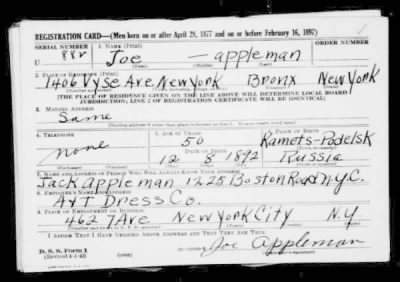 REGISTRATION CARD—(Men born on or after April 28, 1877 and on or before February 16, 1897)
SERIAL NUMBER 1. NAME (Print)
U 882 Joe — appleman
2. PLACE OF RESIDENCE (Print)
1406 Vyse Ave New York Bronx New York
[THE PLACE OF RESIDENCE GIVEN ON THE LINE ABOVE WILL DETERMINE LOCAL BOARD
JURISDICTION; LINE 2 OF REGISTRATION CERTIFICATE WILL BE IDENTICAL]
3. MAILING ADDRESS
Same
4. TELEPHONE 5. AGE IN YEARS 6. PLACE OF BIRTH
50 Kamets-Podelsk
none DATE OF BIRTH
12 8 1892 Russia
7. NAME AND ADDRESS OF PERSON WHO WILL ALWAYS KNOW YOUR ADDRESS
Jack appleman 1225 Boston Road N.Y.C.
8. EMPLOYER'S NAME AND ADDRESS
A+T Dress Co.
9. PLACE OF EMPLOYMENT OR BUSINESS
462 7 Ave New York City N.Y.
I AFFIRM THAT I HAVE VERIFIED ABOVE ANSWERS AND THAT THEY ARE TRUE.
D. S. S. Form 1
(Revised 4-1-42) (over) Joe Appleman